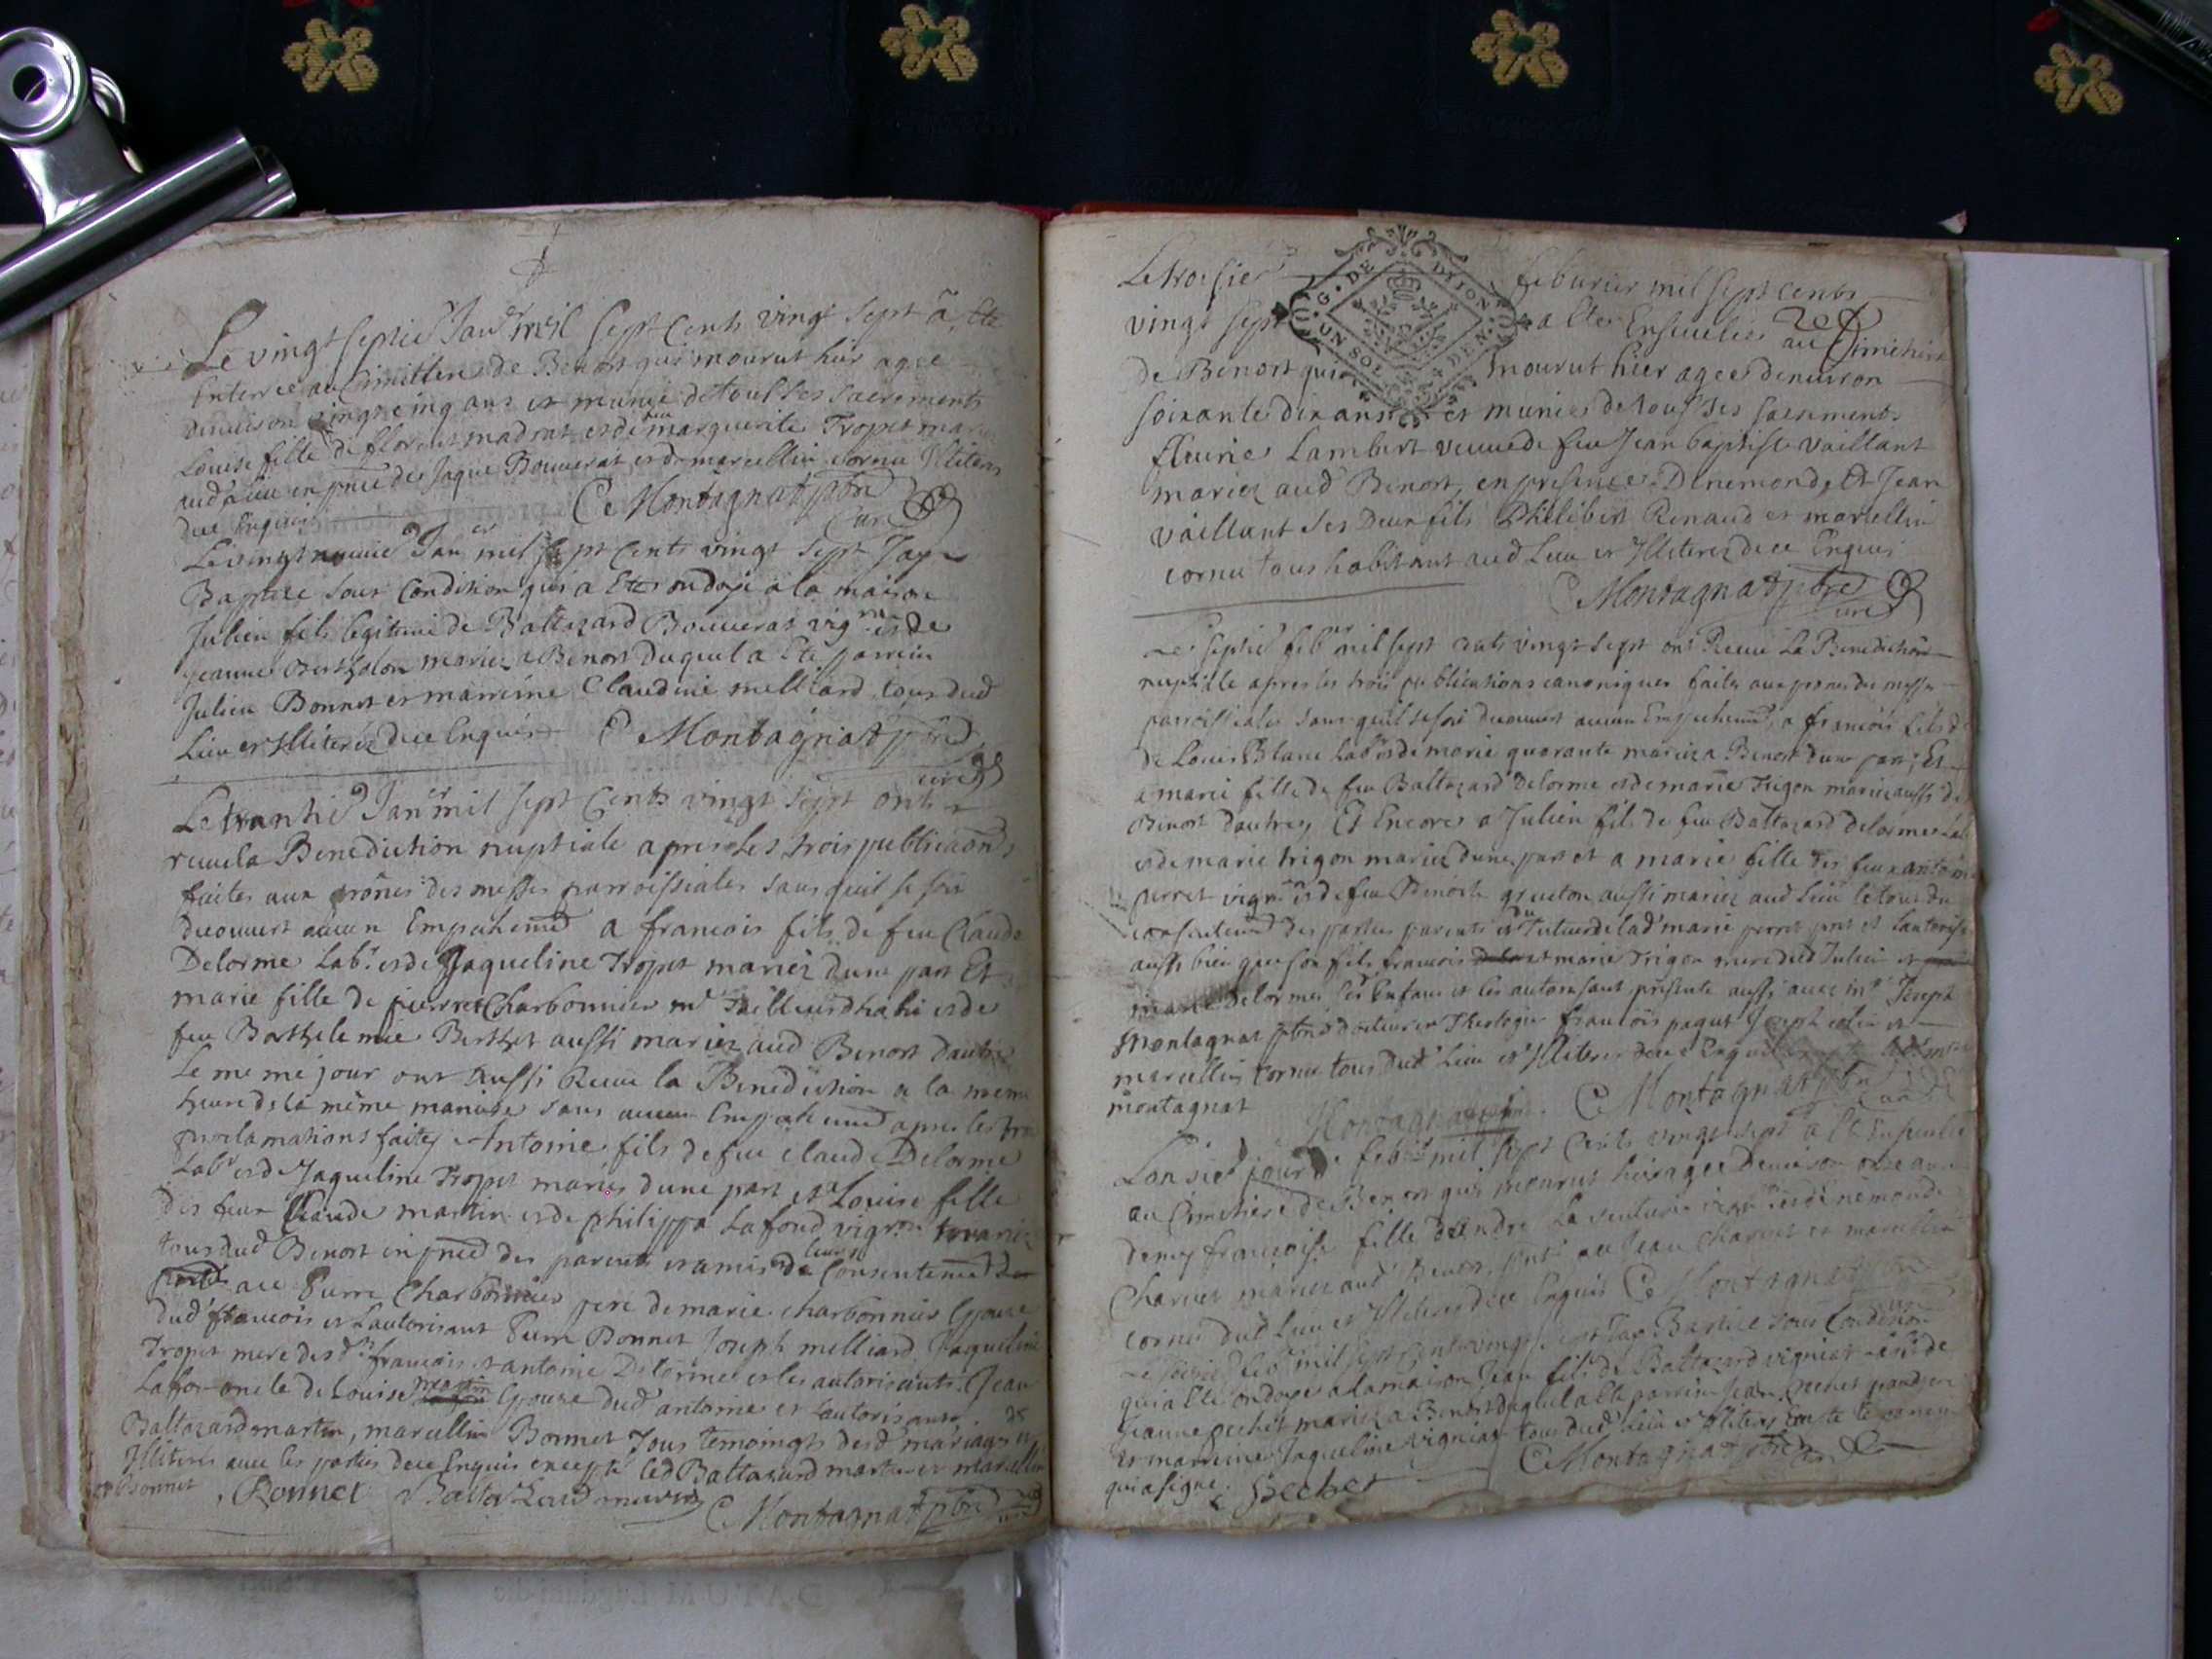 Le vingt septie Janer mil sept Cents vingt sept a Ete
Enterree au Cimittiere de Benost qui mourut hier agee
denviron vingt cinq ans et munie de tout ses sacrements
Louise fille de florent madrat et de feu marguerite Tropet
aud lieu en pnce de Jaque Bouverat et de marcellin cornu Illiteres
dece Enquis C Montagnat pbre
Curé
Le vingt neuvie Janer mil sept Cents vingt sept Jay
Baptize sous Condition qui a Ete ondoyé a la maison
Julien fils legitime de Baltazard Bouverat vigron et de
jeanne Berthelon mariez a Benost duquel a Ete parrein
Julien Bonnet et marreine Claudine milliard tous dud
Lieu et Illiterez dece Enquis C Montagnat pbre
curé
Le trantie Janer mil sept Cents vingt sept ont
recu la Benediction nuptiale apres les trois publications
faites aux prônes des messes parroissiales sans quil se soit
decouvert aucun Empechemt a francois fils de feu Claude
Delorme Labr et de Jaqueline Tropet mariez dune part Et
marie fille de pierre Charbonnier mr Tailleur dhabi et de
feu Barthelemie Berthet aussi mariez aud Benost dautre
Le meme jour ont aussi Receu la Benediction a la meme
heure de la même maniere sans aucun Empechemt apres les trois
proclamations faites Antoine fils de feu claude Delorme
Labr et de Jaqueline Tropet mariés dune part et a Louise fille
des feux Claude martin et de philippa Lafond vigron mariez
tous dud Benost en pnce des parents et amis de leurs Consentement
ace Pierre Charbonnier pere de marie charbonnier Epouze
dud francois et Lautorisant Pierre Bonnet Joseph milliard Jaqueline
Tropet mere desd francois et antoine Delorme et les autorisants Jean
Laffon oncle de Louise martin Epouze dud antoine et Lautorisant
Baltazard martin, marcellin Bonnet Tous temoingts desd mariages et
Illiteres avec les parties dece Enquis excepte led Baltazard martin et marcellin
Bonnet , Bonnet Baltazard martin C Montagnat pbre
curé
Le troisie feburier mil sept cents
vingt sept a Ete Ensevelie au Cimetiere
de Benost qui mourut hier agee denviron
soixante dix ans et munie de tous ses sacrements
fleurie Lambert veuve de feu Jean baptiste vaillant
mariez aud Benost, en presence Denemond, Et Jean
vaillant ses Deux fils Philibert Renaud et marcellin
cornu tous habitant aud Lieu et Illiterez dece Enquis
C Montagnat pbre
curé
G. DE DIJON
UN SOL DEN.
Le septie febr mil sept cents vingt sept ont Receu La Benediction
nuptialle apres les trois publications canoniques faites aux prones des messes
parroissiales sans quil se soit decouvert aucun Empechemt, a francois fils
de Louis Blanc Labr et de marie quarante mariez a Benost dune part, Et
a marie fille de feu Baltazard Delorme et de marie Trigon mariez aussi de
Benost dautre, Et Encore a Julien fils de feu Baltazard delorme
et de marie trigon mariez dune part et a marie fille des feux antoine
perret vigron et de feu Benoite gruton aussi mariez aud Lieu le tous du
consentemt des parties parents et Tuteur de lad marie perret pnt et Lautorise
aussi bien que son fils francois marie trigon mere dud Julien et
marie delorme ses Enfans et les autorisant presente aussi avec mr Joseph
Montagnat pbre docteur en Theologie francois paquet Joseph colin et
marcellin cornu tous dud Lieu et Illiteres dece Enquis
montagnat Montagnat C Montagnat pbre
curé
Lonsie jour de febr mil sept Cents vingt sept a Ete Ensevelie
au Cimetiere de Benost qui mourut hier agee Denviron onze ans
demy francoise fille dAndre La et de nemonde
Charvet mariez aud Benost, pnts Jean Charvet et marcellin
cornu dud Lieu et Illiteres dece Enquis C Montagnat
Le febr mil sept Cents vingt sept Jay Baptize sous Condition
qui a Ete ondoye a la maison Jean fils de Baltazard vigniat et de
Jeanne pechet mariez a Benost duquel a Ete parrein Jean pechet
Et marreine Jaqueline vigniat tous dud Lieu et Illiteres
qui a signé. Pechet C Montagnat pbre